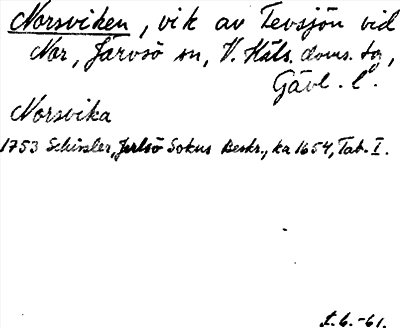 Norsviken, vik av Tevsjön vid
Nor, Järvsö sn, V. Häls. doms. tg,
Gävl. l.
Norsvika
1753 Schissler, Jerlsö Sokns Beskr., ka 1654, Tab. I.
I. 6. -61.